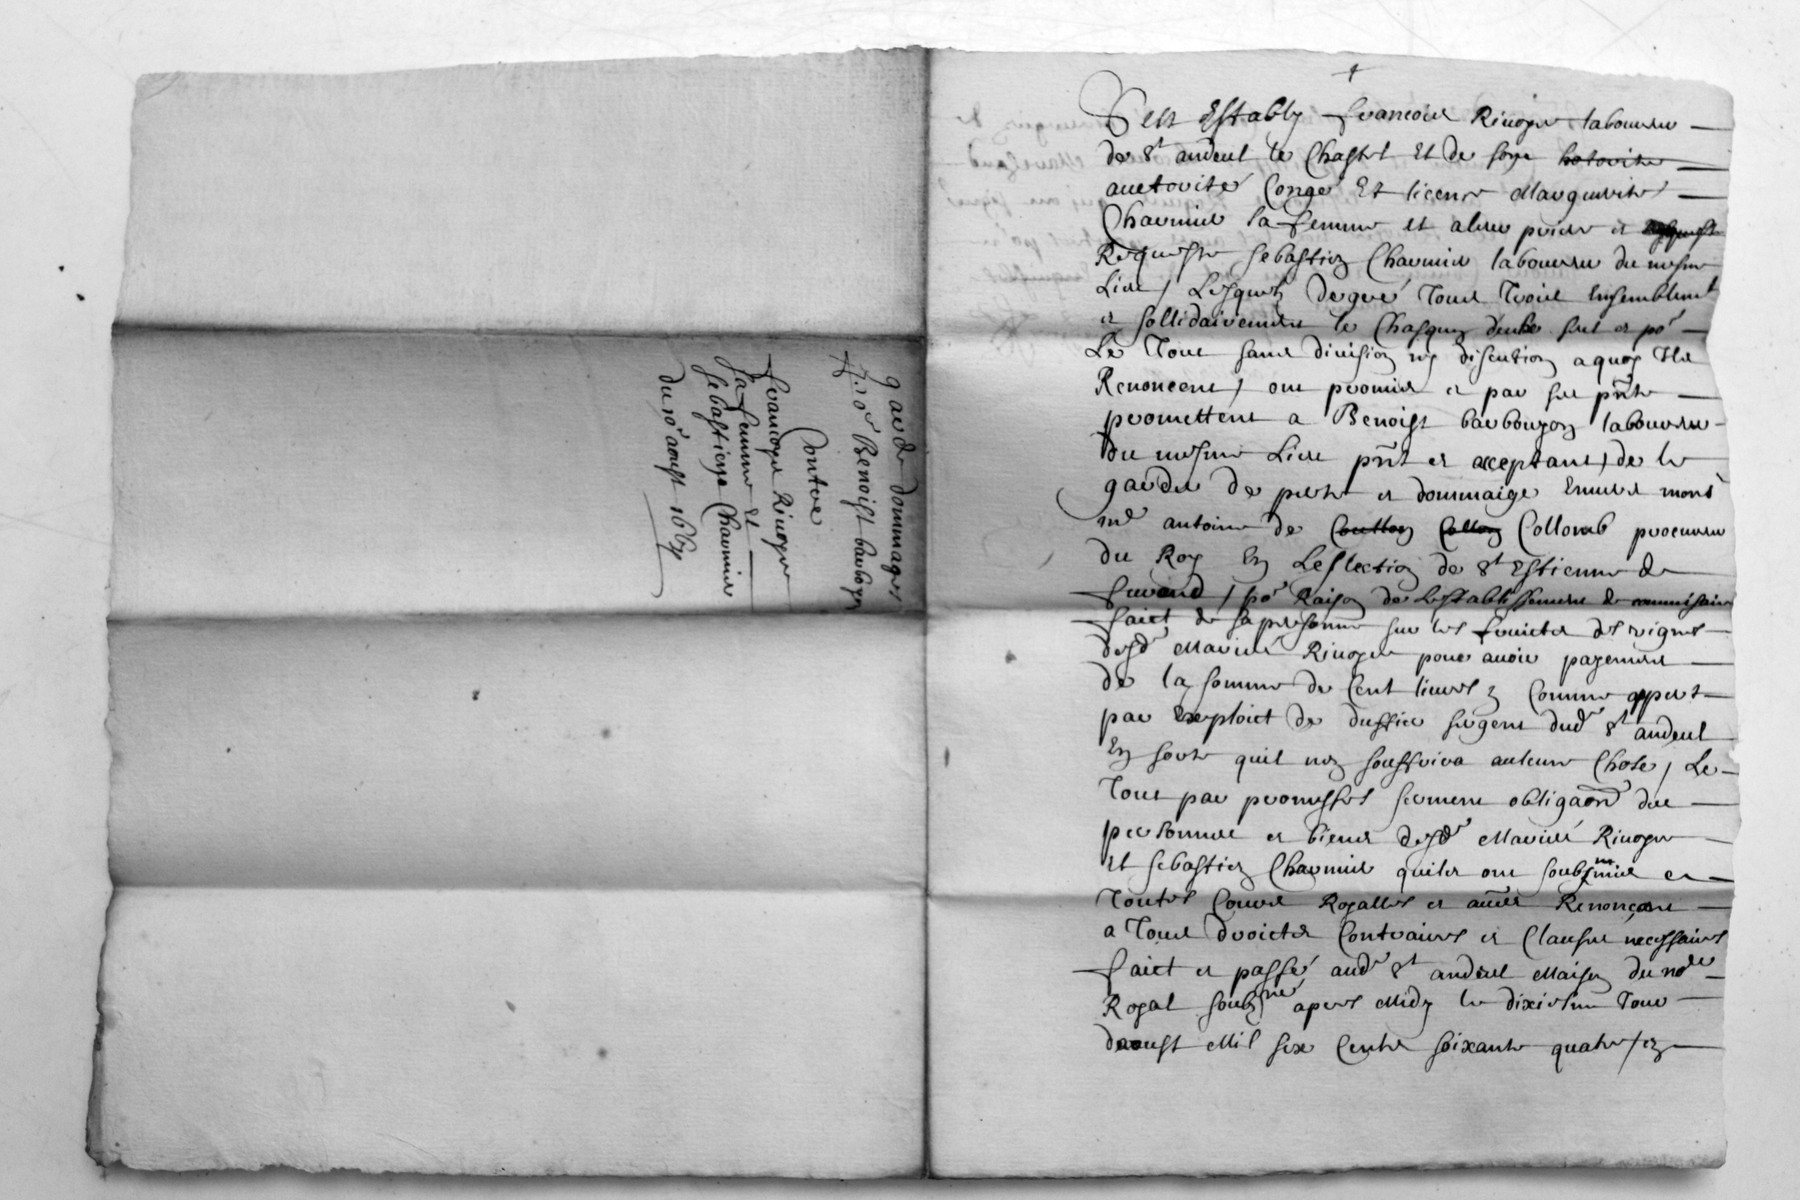 garde dommages
po.r Benoist barboyon
Contre
francoys Riuoyre
sa femme Et
Sebastien Chaumier
du 10e aoust 1664
Cest Estably francois Riuoyre laboureur
de St andeul le Chastel Et de soye hotorite
auctorite Congé Et licence Marguerite
Chaumier sa femme et a leur priere et
Requeste Sebastien Chaumier laboureur du mesme
Lieu / Lesquelz de gré Tous Trois Ensemblemt
et sollidairement le Chascun deulx seul et por
Le Tout sans diuision ny discution a quoy Ils
Renoncent / ont promis et par ses pnts
promettent a Benoist barbouyon laboureur
du mesme Lieu pnt et acceptant / de le
garder de perte et dommaige Enuers monsr
me antoine de Coullon Collon Collomb procureur
du Roy En Leslection de St Estienne de
furand / por Raison de Lestablissement de commissaire
faict de sa personne sur les fruicts des vignes
desdr Mariés Riuoyre pour auoir payement
de la somme de Cent liures Comme appert
par Exploict de duffieu sergent dudr St andeul
En sorte quil nen souffrira aulcune Chose / Le
Tout par promesses serment obligaon des
personnes et biens desdr Mariés Riuoyre
Et Sebastien Chaumier quilz ont soubzmis a
Toutes Cours Royalles et aures Renonçant
a Tous droicts Contraires et Clauses necessaires
faict et passé audr St andeul Maison du nore
Royal soubzné apres Midy le dixiesme Jour
daoust Mil six Cents soixante quatre / en